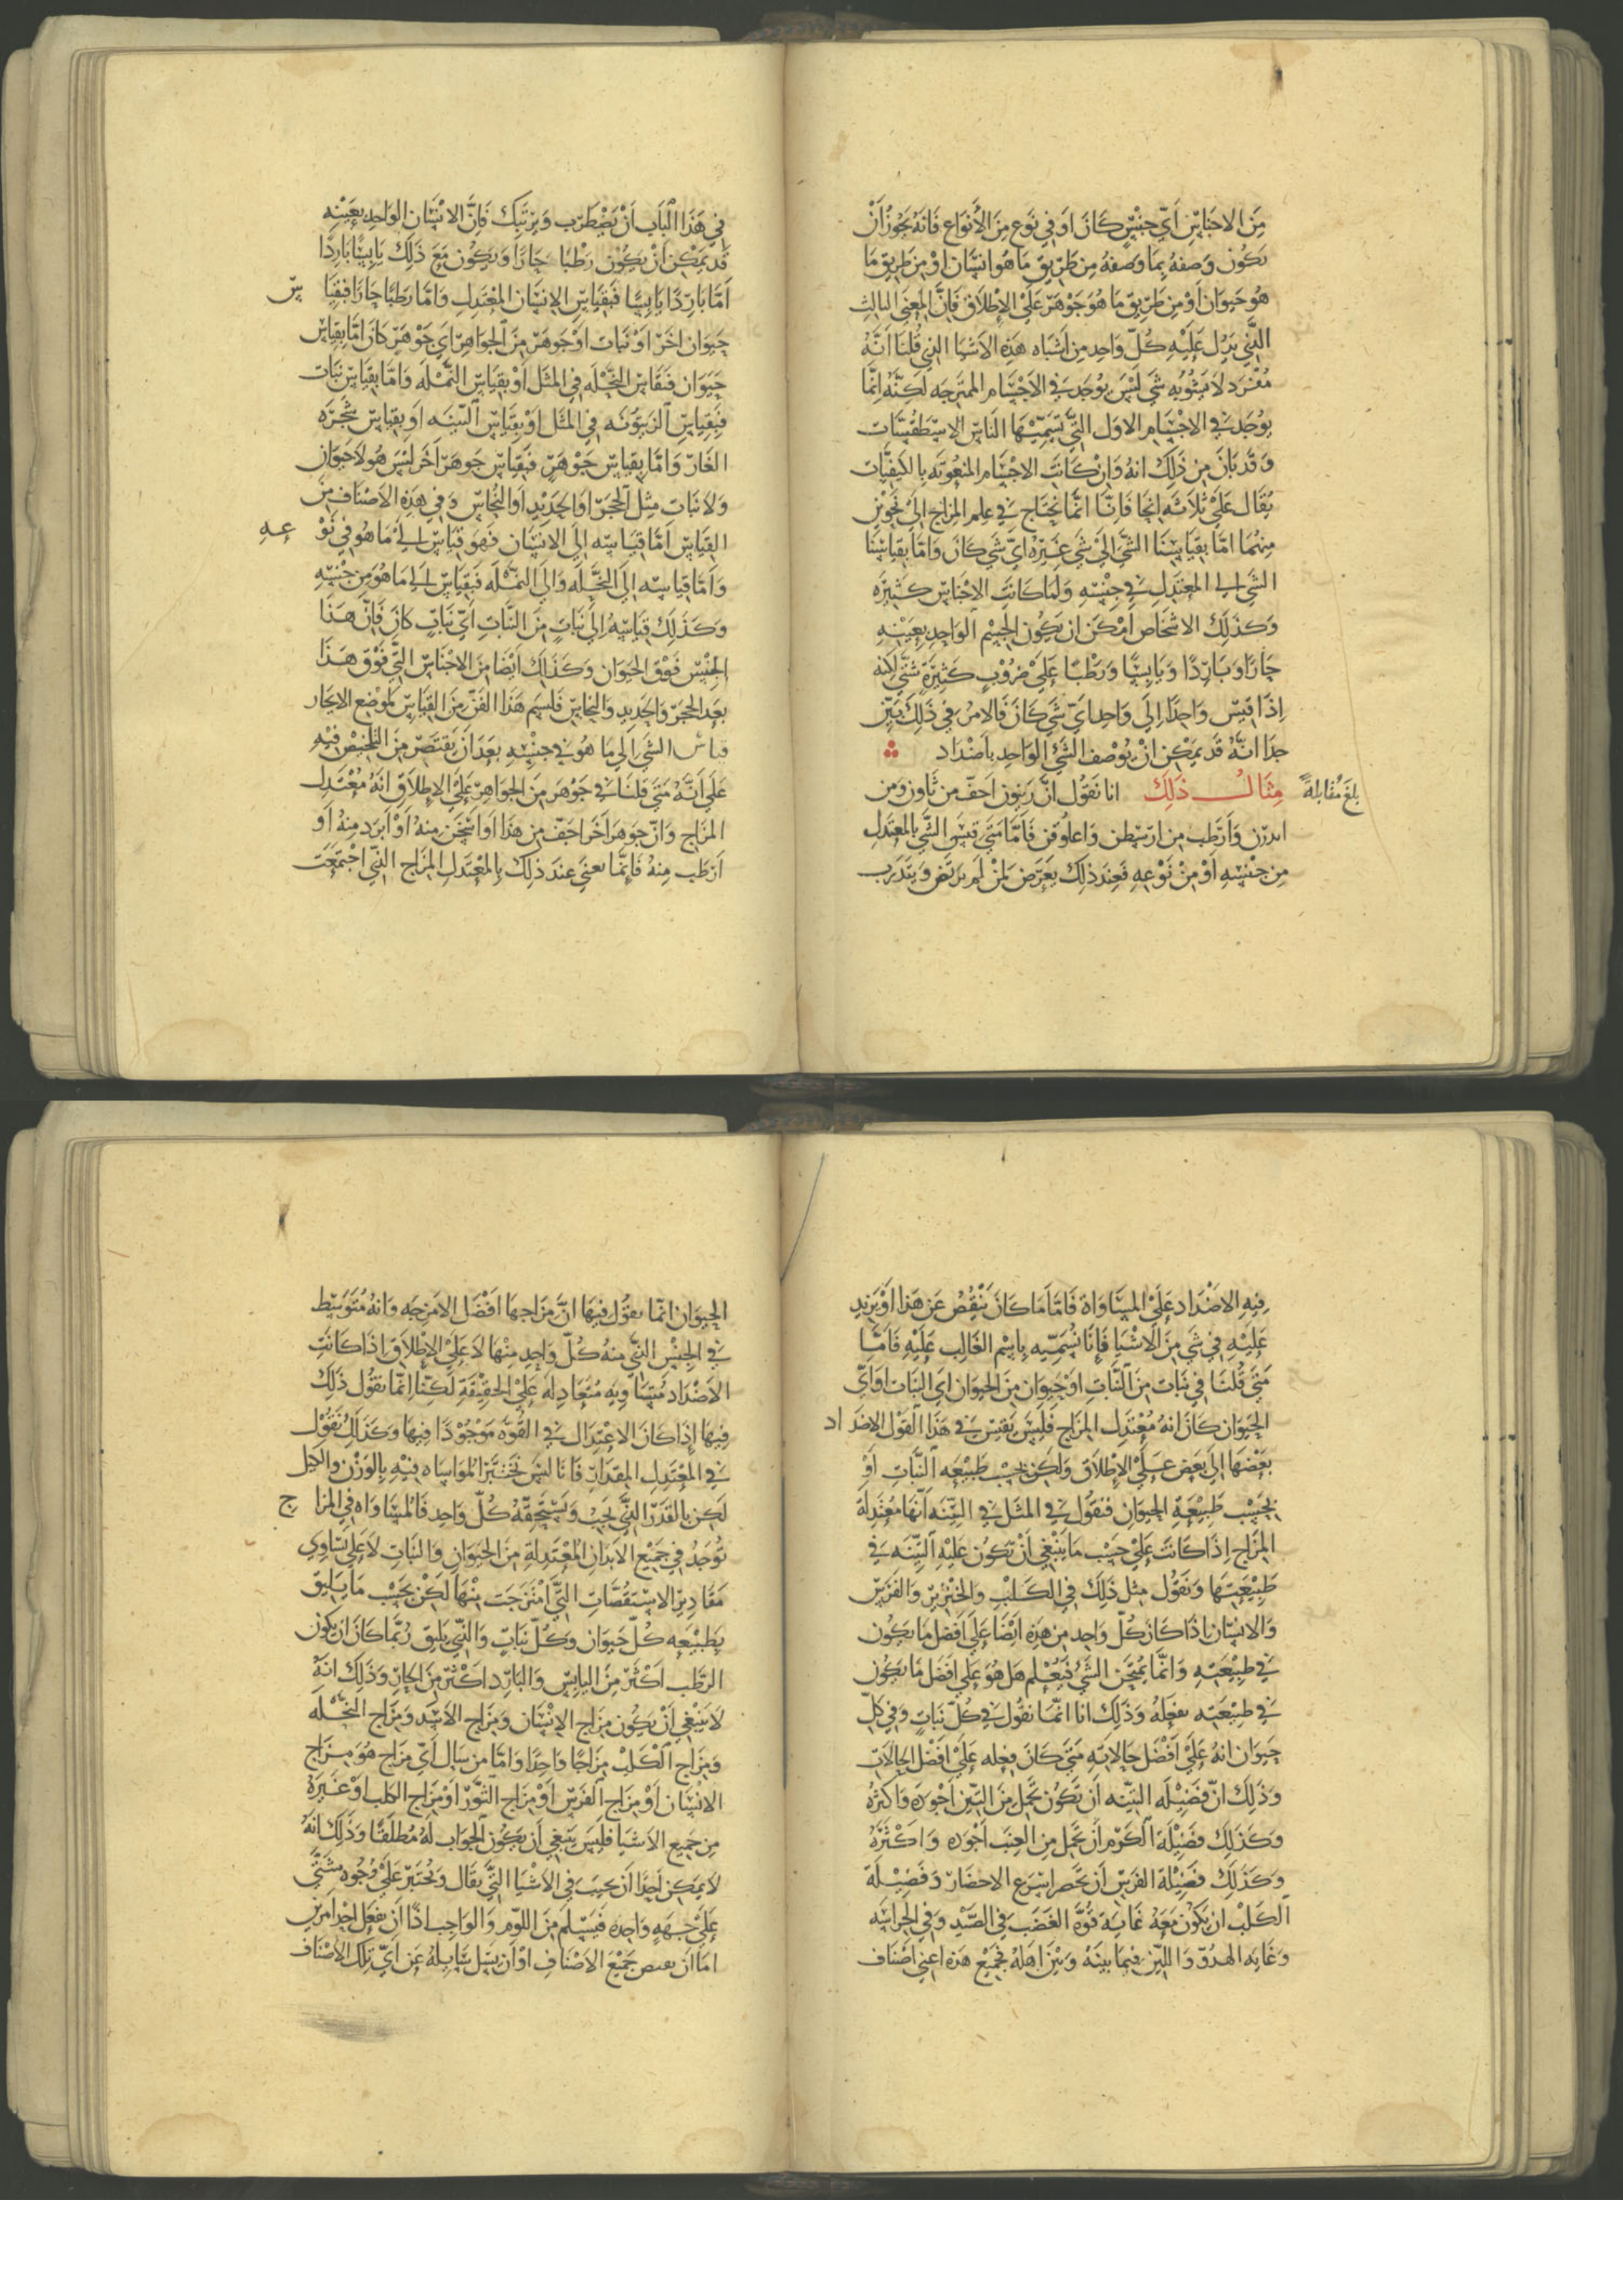 من الاجناس اي جنس كان او في نوع من الانواع فانه يجوز ان
يكون وصفه بما وصفه من طريق ما هو انسان او من طريق ما
هو حيوان او من طريق ما هو جوهر على الاطلاق فان المعنى الثالث
الذي يدل عليه كل واحد من اشباه هذه الاشيا التي قلنا انه
مفرد لا يشوبه شي ليس يوجد في الاجسام الممتزجه لكنه انما
يوجد في الاجسام الاول التي تسميها الناس الاسطقسات
وقد بان من ذلك انه وان كانت الاجسام المنعوته بالكيفيات
يقال على ثلاثه انحا فاننا انما نحتاج في علم المزاج الى نحوين
منهما اما بقياسنا الشي الى شي غيره اي شي كان واما بقياسنا
الشي الى المعتدل في جنسه ولما كانت الاجناس كثيره
وكذلك الاشخاص امكن ان يكون الجسم الواحد بعينه
حارا وباردا ويابسا ورطبا على ضروب كثيرة شتى لانه
اذا قيس واحدا الى واحد اي شي كان فالامر في ذلك بين
جدا انه قد يمكن ان يوصف الشي الواحد باضداد
مثال ذلك انا نقول ان زينون اجف من ثاون ومن
بلغ مقابلة
وارطب من ارسطن واغلوقن فاما متى قيس الشي بالمعتدل
من جنسه او من نوعه فعند ذلك يعرض لمن لم يرتض ويتدرب
في هذا الباب ان يضطرب ويرتبك فان الانسان الواحد بعينه
قد يمكن ان يكون رطبا حارا ويكون مع ذلك يابسا باردا
اما باردا يابسا فبقياس الانسان المعتدل واما رطبا حارا فبقيا س
حيوان اخر او نبات او جوهر من الجواهر اي جوهر كان اما بقياس
حيوان فبقياس النحله في المثل او بقياس النمله واما بقياس نبات
فبقياس الزيتونه في المثل او بقياس التينه او بقياس شجره
الغار واما بقياس جوهر فبقياس جوهر اخر ليس هو لا حيوان
ولا نبات مثل الحجر او الحديد او النحاس وفي هذه الاصناف من
القياس اما قياسه الى الانسان فهو قياس الى ما هو في نو عه
واما قياسه الى النحله والى النمله فبقياس الى ما هو من جنسه
وكذلك قياسه الى نبات من النبات اي نبات كان فان هذا
الجنس فوق الحيوان وكذلك ايضا من الاجناس التي فوق هذا
بعد الحجر والحديد والنحاس فلنسم هذا الفن من القياس لموضع الايجاز
قياس الشي الى ما هو في جنسه بعد ان نقتصر من التلخيص فيه
على انه متى قلنا في جوهر من الجواهر على الاطلاق انه معتدل
المزاج وان جوهرا اخر اجف من هذا او اسخن منه او ابرد منه او
ارطب منه فانما نعني عند ذلك بالمعتدل المزاج الذي اجتمعت
فيه الاضداد على المساواة فاما ما كان ينقص عن هذا او يزيد
عليه في شي من الاشيا فانا نسميه باسم الغالب عليه فاما
متى قلنا في نبات من النبات او حيوان من الحيوان اي النبات او اي
الحيوان كان انه معتدل المزاج فليس نقيس في هذا القول الاضداد
بعضها الى بعض على الاطلاق ولكن بحسب طبيعه النبات او
بحسب طبيعة الحيوان فنقول في المثل في التينه انها معتدلة
المزاج اذا كانت على حسب ما ينبغي ان تكون عليه التينه في
طبيعتها ونقول مثل ذلك في الكلب والخنزير والفرس
والانسان اذا كان كل واحد من هذه ايضا على افضل ما يكون
في طبيعته وانما يمتحن الشي فيعلم هل هو على افضل ما يكون
في طبيعته بفعله وذلك انا انما نقول في كل نبات وفي كل
حيوان انه على افضل حالاته متى كان فعله على افضل الحالات
وذلك ان فضيله التينه ان تكون تحمل من التين اجوده واكثره
وكذلك فضيلة الكرم ان تحمل من العنب اجوده واكثره
وكذلك فضيلة الفرس ان يحضر اسرع الاحضار وفضيلة
الكلب ان يكون معه غاية قوة الغضب في الصيد وفي الحراسه
وغايه الهدو واللين فيما بينه وبين اهله فجميع هذه اعني اصناف
الحيوان انما نقول فيها ان مزاجها افضل الامزجه وانه متوسط
في الجنس الذي منه كل واحد منها لا على الاطلاق اذا كانت
الاضداد متساويه متعادله على الحقيقة لكنا انما نقول ذلك
فيها اذا كان الاعتدال في القوه موجودا فيها وكذلك نقول
في المعتدل المقدار فانا ليس نختبر المواساه فيه بالوزن والكيل
لكن بالقدر الذي يجب ويستحقه كل واحد فالمساواه في المزا ج
توجد في جميع الابدان المعتدلة من الحيوان والنبات لا على تساوي
مقادير الاستقصات التي امتزجت منها لكن بحسب ما يليق
بطبيعه كل حيوان وكل نبات والذي يليق ربما كان ان يكون
الرطب اكثر من اليابس والبارد اكثر من الحار وذلك انه
لا ينبغي ان يكون مزاج الانسان ومزاج الاسد ومزاج النحله
ومزاج الكلب مزاجا واحدا واما من سال اي مزاج هو مزاج
الانسان او مزاج الفرس او مزاج الثور او مزاج الكلب او غيره
من جميع الاشيا فليس ينبغي ان يكون الجواب له مطلقا وذلك انه
لا يمكن احدا ان يجيب في الاشيا التي يقال ويختبر على وجوه شتى
على جهة واحده فيسلم من اللوم والواجب اذا ان يفعل احد امرين
اما ان جميع الاصناف او ان يسل سايله عن اي تلك الاصناف